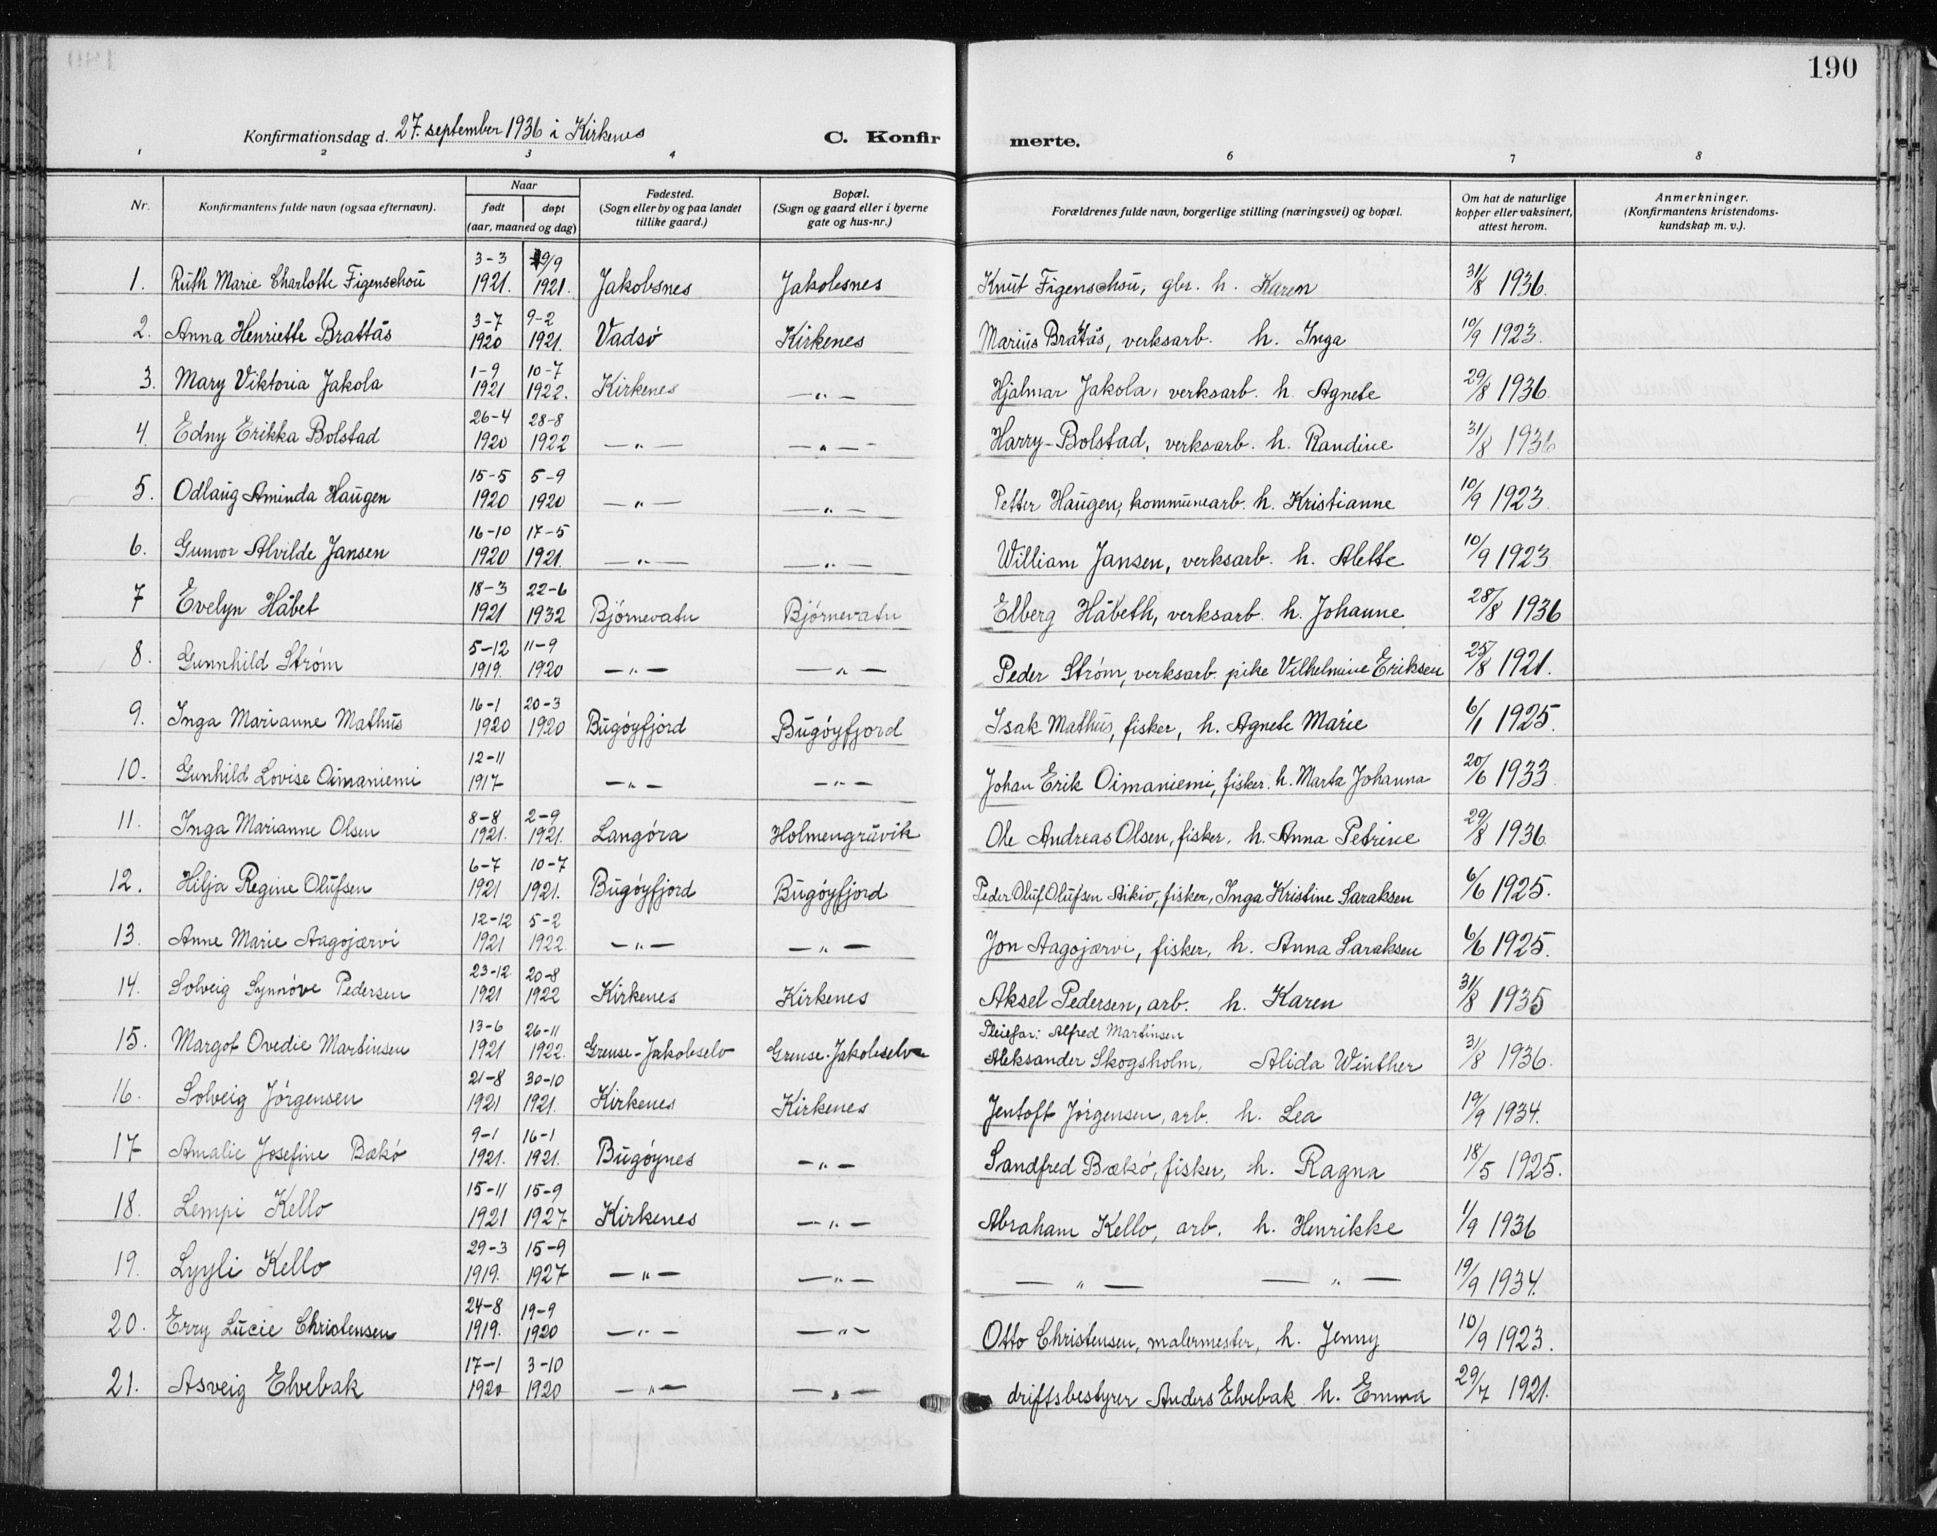 190
Konfirmationsdag d. 27. september 1936 i Kirkenes C. Konfirmerte.
1 2 3 4 6 7 8
Nr. Konfirmantens fulde navn (ogsaa efternavn). Naar født døpt (aar, maaned og dag) Fødested. (Sogn eller by og paa landet tillike gaard.) Bopæl. (Sogn og gaard eller i byerne gate og hus-nr.) Forældrenes fulde navn, borgerlige stilling (næringsvei) og bopæl. Om hat de naturlige kopper eller vaksinert, attest herom. Anmerkninger. (Konfirmantens kristendoms-kundskap m. v.).
1. Ruth Marie Charlotte Figenschou 3-3 1921. 9/9 1921. Jakobsnes Jakobsnes Knut Figenschou, gbr. h. Karen 31/8 1936.
2. Anna Henriette Brattås 3-7 1920 9-2 1921. Vadsø Kirkenes Marius Brattås, verksarb. h. Inga 10/9 1923.
3. Mary Viktoria Jakola 1-9 1921 10-7 1922. Kirkenes —„— Hjalmar Jakola, verksarb. h. Agnete 29/8 1936.
4. Edny Erikka Bolstad 26-4 1920 28-8 1922 —„— —„— Harry Bolstad, verksarb. h. Randine 31/8 1936
5. Odlaug Aminda Haugen 15-5 1920 5-9 1920 —„— —„— Petter Haugen, kommunearb. h. Kristianne 10/9 1923.
6. Gunvor Alvilde Jansen 16-10 1920 17-5 1921. —„— —„— William Jansen, verksarb. h. Alette 10/9 1923
7 Evelyn Håbet 18-3 1921 22-6 1932 Bjørnevatn Bjørnevatn Elberg Håbeth, verksarb. h. Johanne 28/8 1936
8. Gunnhild Strøm 5-12 1919. 11-9 1920 —„— —„— Peder Strøm, verksarb. pike Vilhelmine Eriksen 25/8 1921.
9. Inga Marianne Mathus 16-1 1920 20-3 1920 Bugøyfjord Bugøyfjord Isak Mathus, fisker, h. Agnete Marie 6/1 1925.
10. Gunhild Lovise Oimaniemi 12-11 1917 —„— —„— Johan Erik Oimaniemi, fisker. h. Marta Johanna 20/6 1933.
11. Inga Marianne Olsen 8-8 1921. 2-9 1921. Langøra Holmengråvik Ole Andreas Olsen, fisker, h. Anna Petrine 29/8 1936.
12. Hilja Regine Olufsen 6-7 1921 10-7 1921. Bugøyfjord Bugøyfjord Peder Oluf Olufsen Aikio, fisker, Inga Kristine Saraksen 6/6 1925.
13. Anne Marie Aagojærvi 12-12 1921 5-2 1922 —„— —„— Jon Aagojærvi, fisker, h. Anna Saraksen 6/6 1925.
14. Solveig Synnøve Pedersen 23-12 1921 20-8 1922 Kirkenes Kirkenes Aksel Pedersen, arb. h. Karen 31/8 1935
15. Margot Ovedie Martinsen 13-6 1921 26-11 1922. Grense-Jakobselv Grense-Jakobselv Pleiefar: Alfred Martinsen
Aleksander Skogsholm, Alida Winther 31/8 1936.
16. Solveig Jørgensen 21-8 1921 30-10 1921. Kirkenes Kirkenes Jentoft Jørgensen, arb. h. Lea 19/9 1934.
17 Amalie Josefine Bækø 9-1 1921. 16-1 1921. Bugøynes —„— Sandfred Bækø, fisker, h. Ragna 18/5 1925.
18. Lempi Kello 15-11 1921 15-9 1927 Kirkenes —„— Abraham Kello, arb. h. Henrikke 1/9 1936
19. Lyyli Kello 29-3 1919. 15-9 1927 —„— —„— —„— —„— 19/9 1934.
20. Erry Lucie Christensen 24-8 1919. 19-9 1920 —„— —„— Otto Christensen, malermester, h. Jenny 10/9 1923.
21. Asveig Elvebak 17-1 1920 3-10 1920 —„— —„— driftsbestyrer Anders Elvebak h. Emma 29/7 1921.